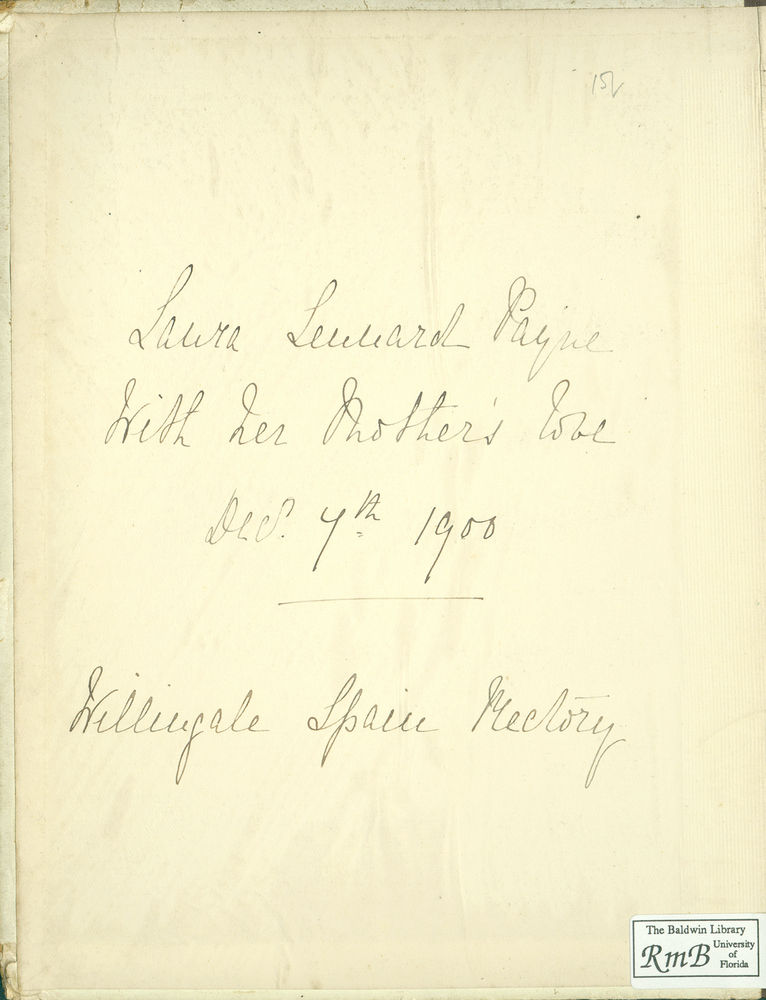 15/
Laura Lennard Payne
With her Mother's love
Dec. 7th 1900
Willingale Spain Rectory
The Baldwin Library
RmB University of Florida